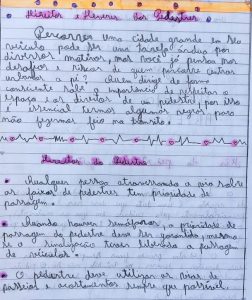 Direitos e Deveres dos Pedestres
Percorrer uma cidade grande em seu
veículo pode ser uma tarefa árdua por
diversos motivos, mas você já pensou por
desafios e riscos de quem percorre outras
andando a pé? Outra dirigir de forma
consciente sobre a importância de respeitar o
espaço e os direitos de um pedestre, por isso
é essencial termos algumas regras para
não fazermos feio no trânsito.
Direitos do Pedestre
• Qualquer pessoa atravessando a via sobre
as faixas de pedestres tem prioridade de
passagem.
• Quando houver semáforos, a prioridade de
passagem do pedestre deve ser garantida mesmo
se a sinalização tenha liberado a passagem
de veículos.
• O pedestre deve utilizar as vias de
passeios e acostamentos sempre que possível.